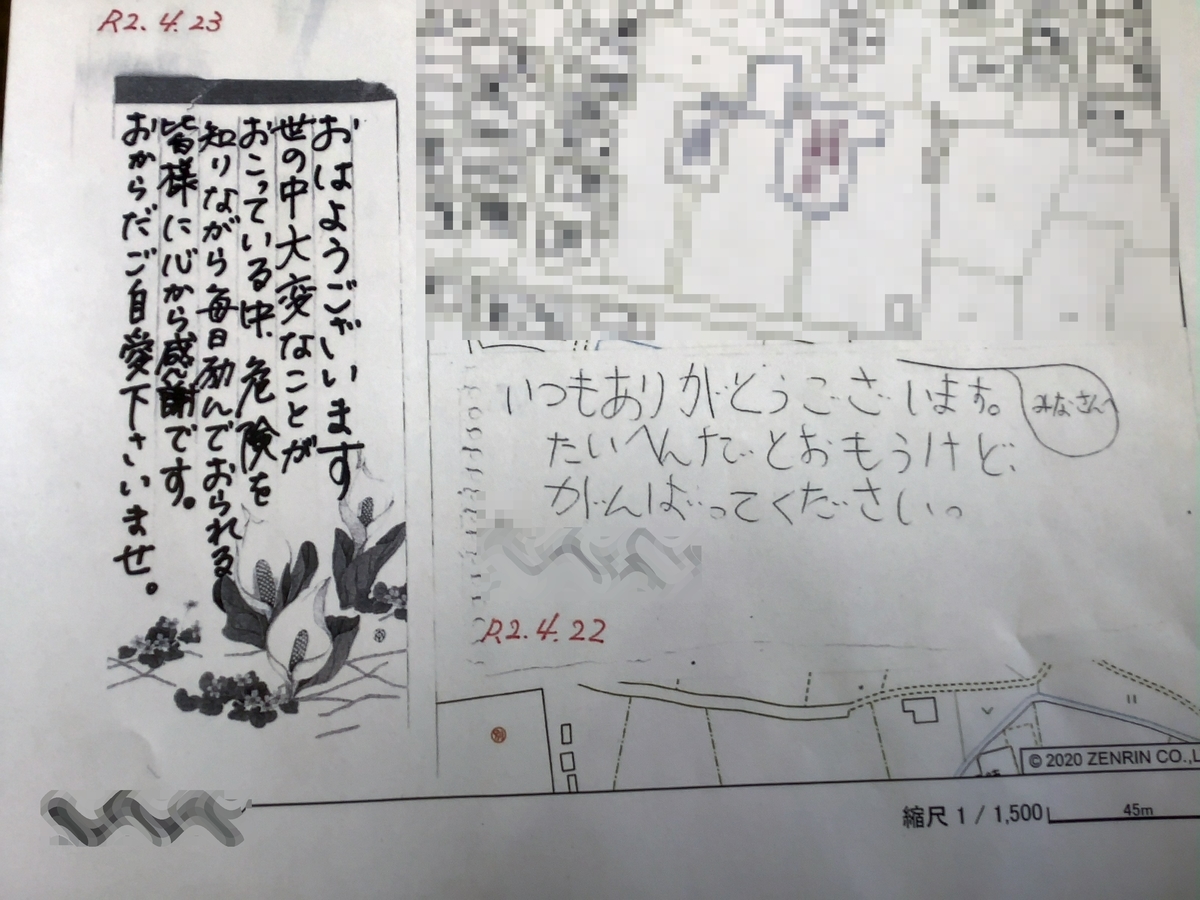 R2.4.23
おはようございます
世の中大変なことが
おこっている中、危険を
知りながら毎日励んでおられる
皆様に心から感謝です。
おからだご自愛下さいませ。
いつもありがとうございます。
みなさんへ
たいへんだとおもうけど、
がんばってください。
R2.4.22
© 2020 ZENRIN CO.,L
縮尺 1 / 1,500
45m